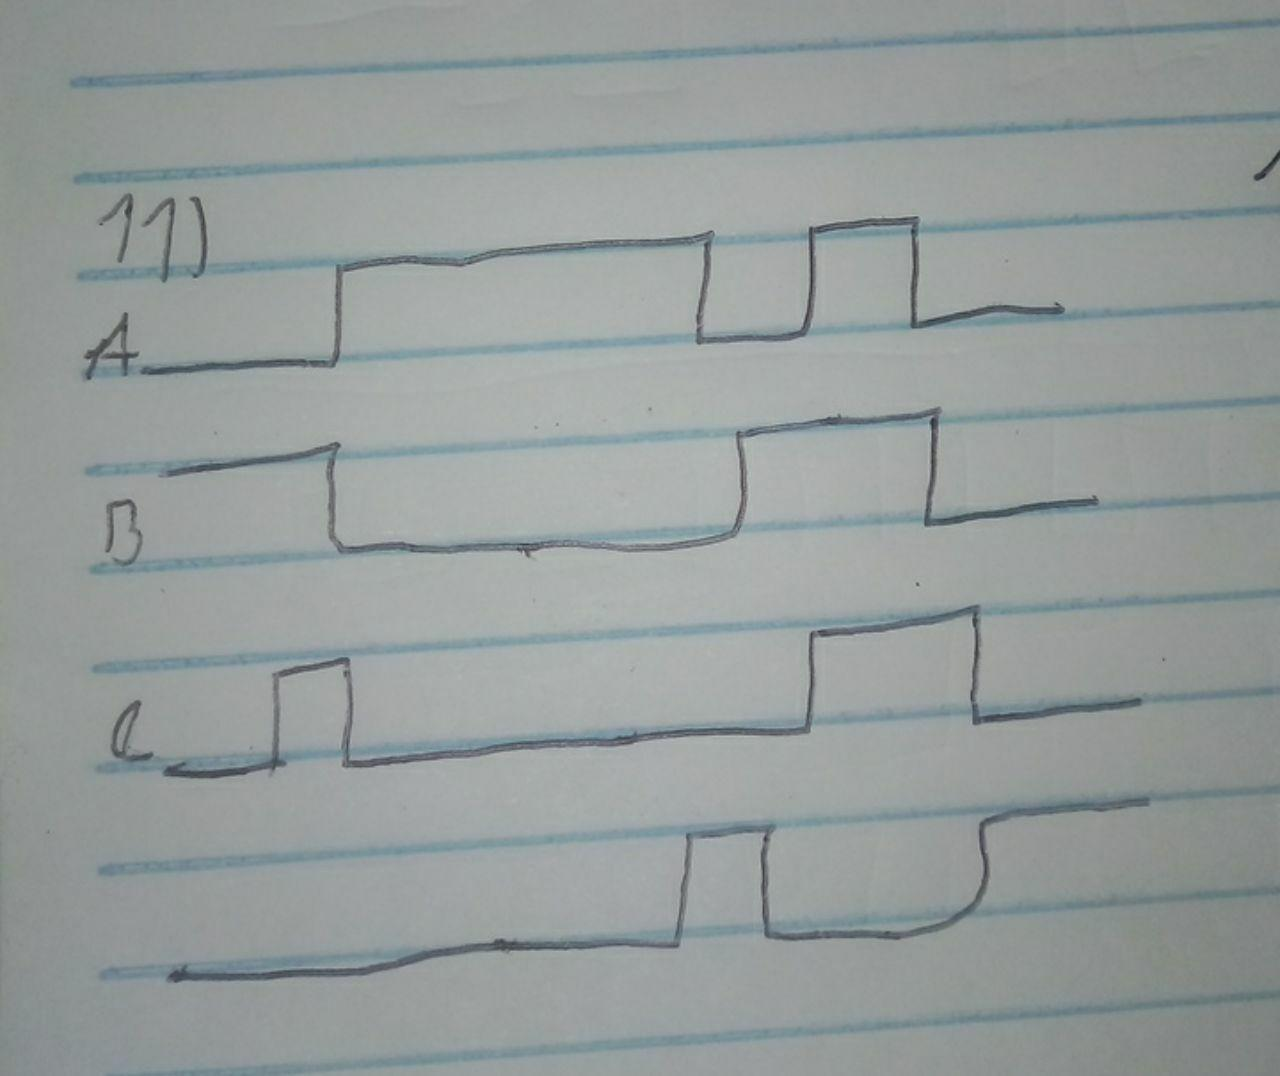 11)
A
B
C